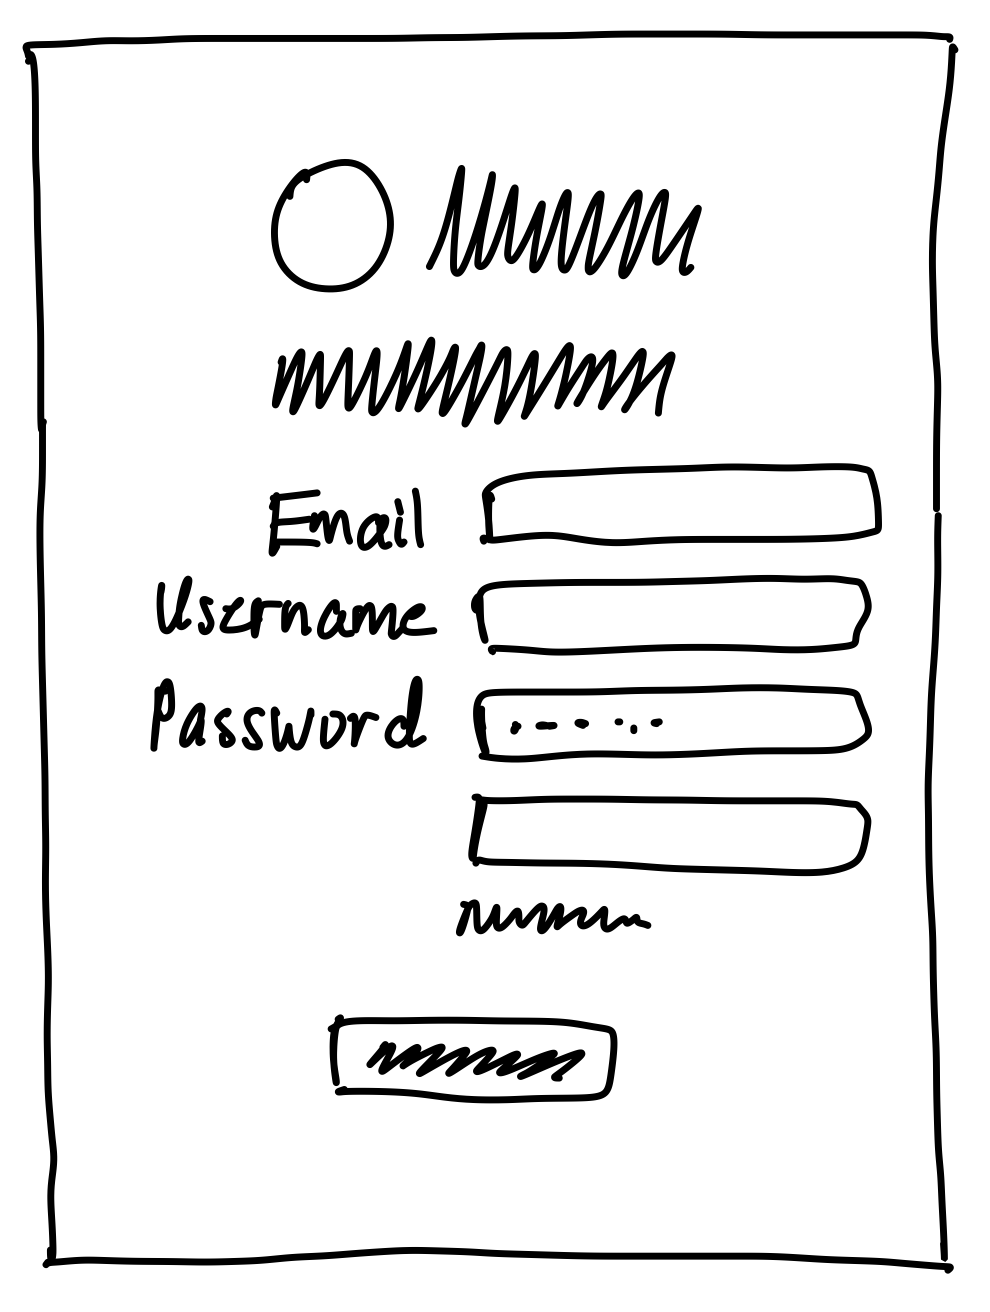 Email
Username
Password